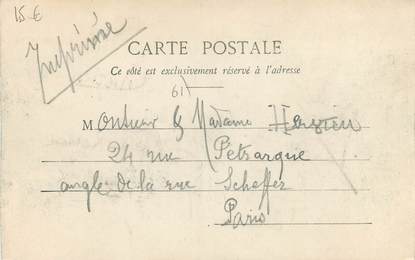 15 €
Imprimée
CARTE POSTALE
Ce côté est exclusivement réservé à l'adresse
61
Monsieur & Madame
24 rue Pétrarque
angle de la rue Scheffer
Paris